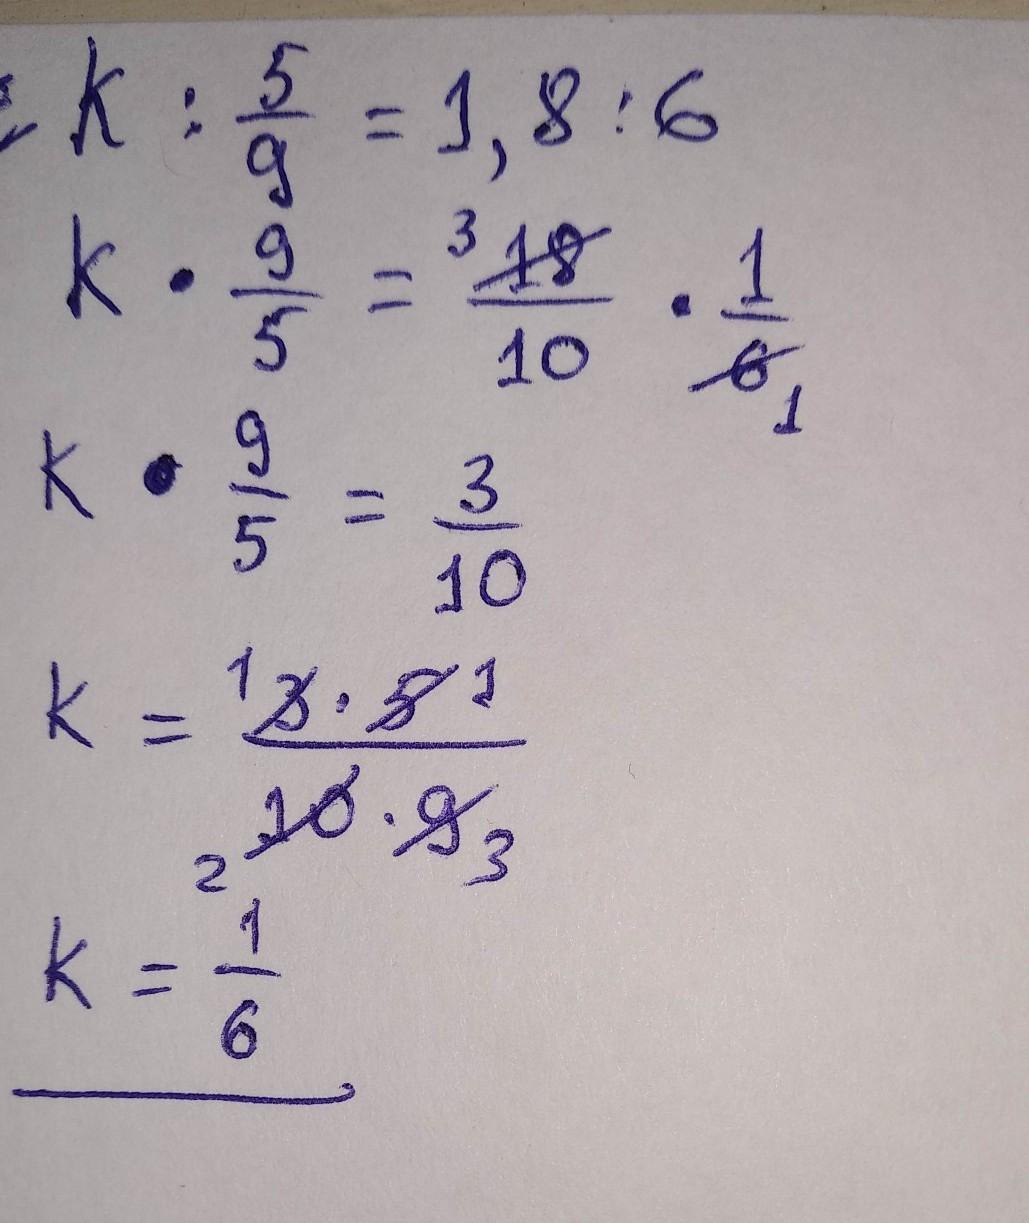 K : 5/9 = 1,8 : 6
K • 9/5 = 3 18/10 • 1/6 1
K • 9/5 = 3/10
K = 1 3 · 5 1 / 2 10 · 9 3
K = 1/6